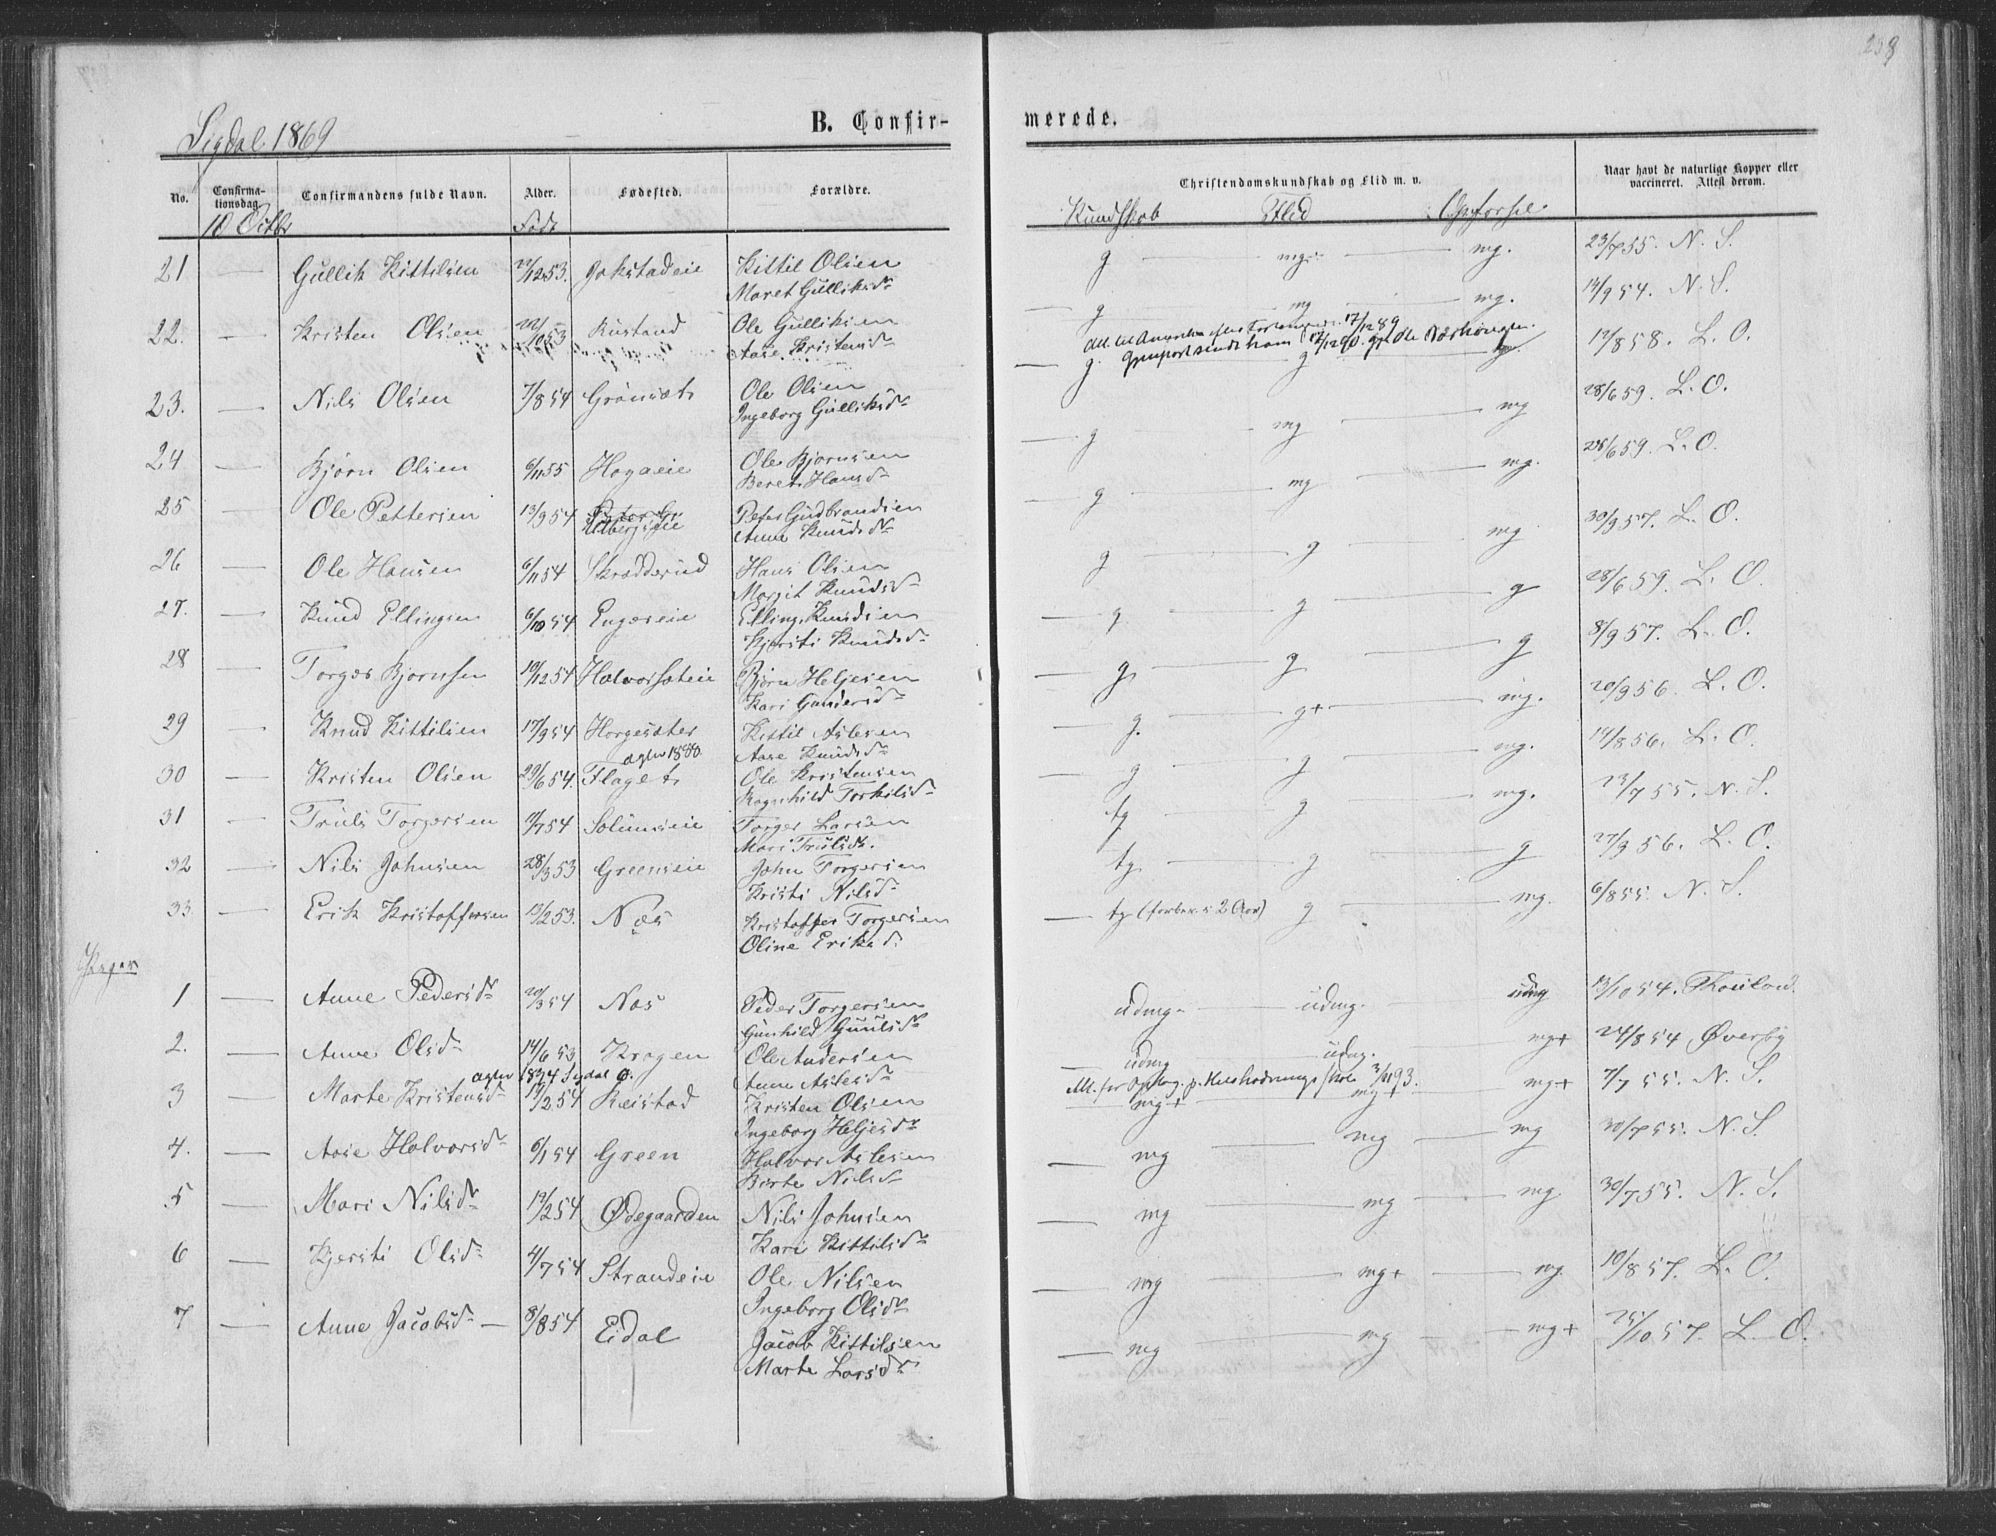 239
Sigdal 1869
B. Confir-
merede.
No.
Confirma-
tionsdag.
Confirmandens fulde Navn.
Alder.
Fødested.
Forældre.
Christendomskundskab og Flid m. v.
Naar havt de naturlige Kopper eller
vaccineret. Attest derom.
10 Octbr
Født
Kundskab Flid Opførsel
21 Gullik Kittilsen 22/12 53. Jokstadeie Kittil Olsen g mg mg. 23/7 55. N. S.
Maret Gulliksdr
22. Kristen Olsen 22/10 53 Kustand Ole Gulliksen g mg mg. 14/9 54. N. S.
Aase Kristensdr
17/12 89
23. Nils Olsen 7/8 54 Grønsæt Ole Olsen g. g tg. 12/8 58. L. O.
Ingeborg Gulliksdr
24 Bjørn Olsen 6/11 55 Hogaeie Ole Bjørnsen g mg mg 28/6 59. L. O.
Beret Hansdr
25 Ole Pettersen 13/9 54 Peter Gudbrandsen g mg mg. 28/6 59. L. O.
Anne Knudsdr
26 Ole Hansen 6/11 54 Skradderud Hans Olsen g g mg 30/9 57. L. O.
Margit Knudsdr
27. Knud Ellingsen 6/10 54 Engeseie Elling Knudsen g g g 28/6 59. L. O.
Kjersti Knudsdr
28 Torger Bjørnsen 10/12 54 Halvorsæteie Bjørn Heljesen g g g 8/9 57. L. O.
Kari Gundersdr
29 Knud Kittilsen 17/9 54 Horgesæter Kittil Aslesen g. g+ mg. 20/9 56. L. O.
Aase Knudsdr
30 Kristen Olsen 29/6 54. Flaget Ole Kristensen g g mg. 14/8 56. L. O.
Ragnhild Torkilsdr
31 Truls Torgersen 7/7 54 Solumseie Torger Larsen tg g mg. 23/7 55. N. S.
Mari Trulsdr.
32 Nils Johnsen 28/3 53 Greenseie John Torgersen tg g g 27/9 56. L. O.
Kristi Nilsdr
33 Erik Kristoffersen 13/2 53. Næs Kristoffer Torgersen tg (forber. i 2 Aar) g mg. 6/8 55. N. S.
Oline Eriksd.
Piger
1 Anne Pedersdr 20/3 54 Næs Peder Torgersen udmg. udmg. udmg 13/10 54. Thoulow.
Gunhild Guulsdr
2. Anne Olsdr 14/6 53 Kragen Ole Andersen udmg udmg. mg+ 24/8 54 Øverby
Anne Aslesdr
3 Marte Kristensdr 19/2 54 Reistad Kristen Olsen mg+ mg+ mg+ 7/7 55. N. S.
Ingeborg Heljesdr
4. Aase Halvorsdr 6/1 54 Green Halvor Aslesen mg mg mg 30/7 55. N. S.
Birte Nilsdr
5 Mari Nilsdr 19/2 54 Ødegaarden Nils Johnsen mg mg mg 30/7 55. N. S.
Kari Kittilsdr
6 Kjersti Olsdr 4/7 54 Strandeie Ole Nilsen mg mg+ mg 10/8 57. L. O.
Ingeborg Olsdr
7 Anne Jacobsdr 8/8 54 Eidal Jacob Kittilsen mg mg mg+ 25/10 57. L. O.
Marte Larsdr